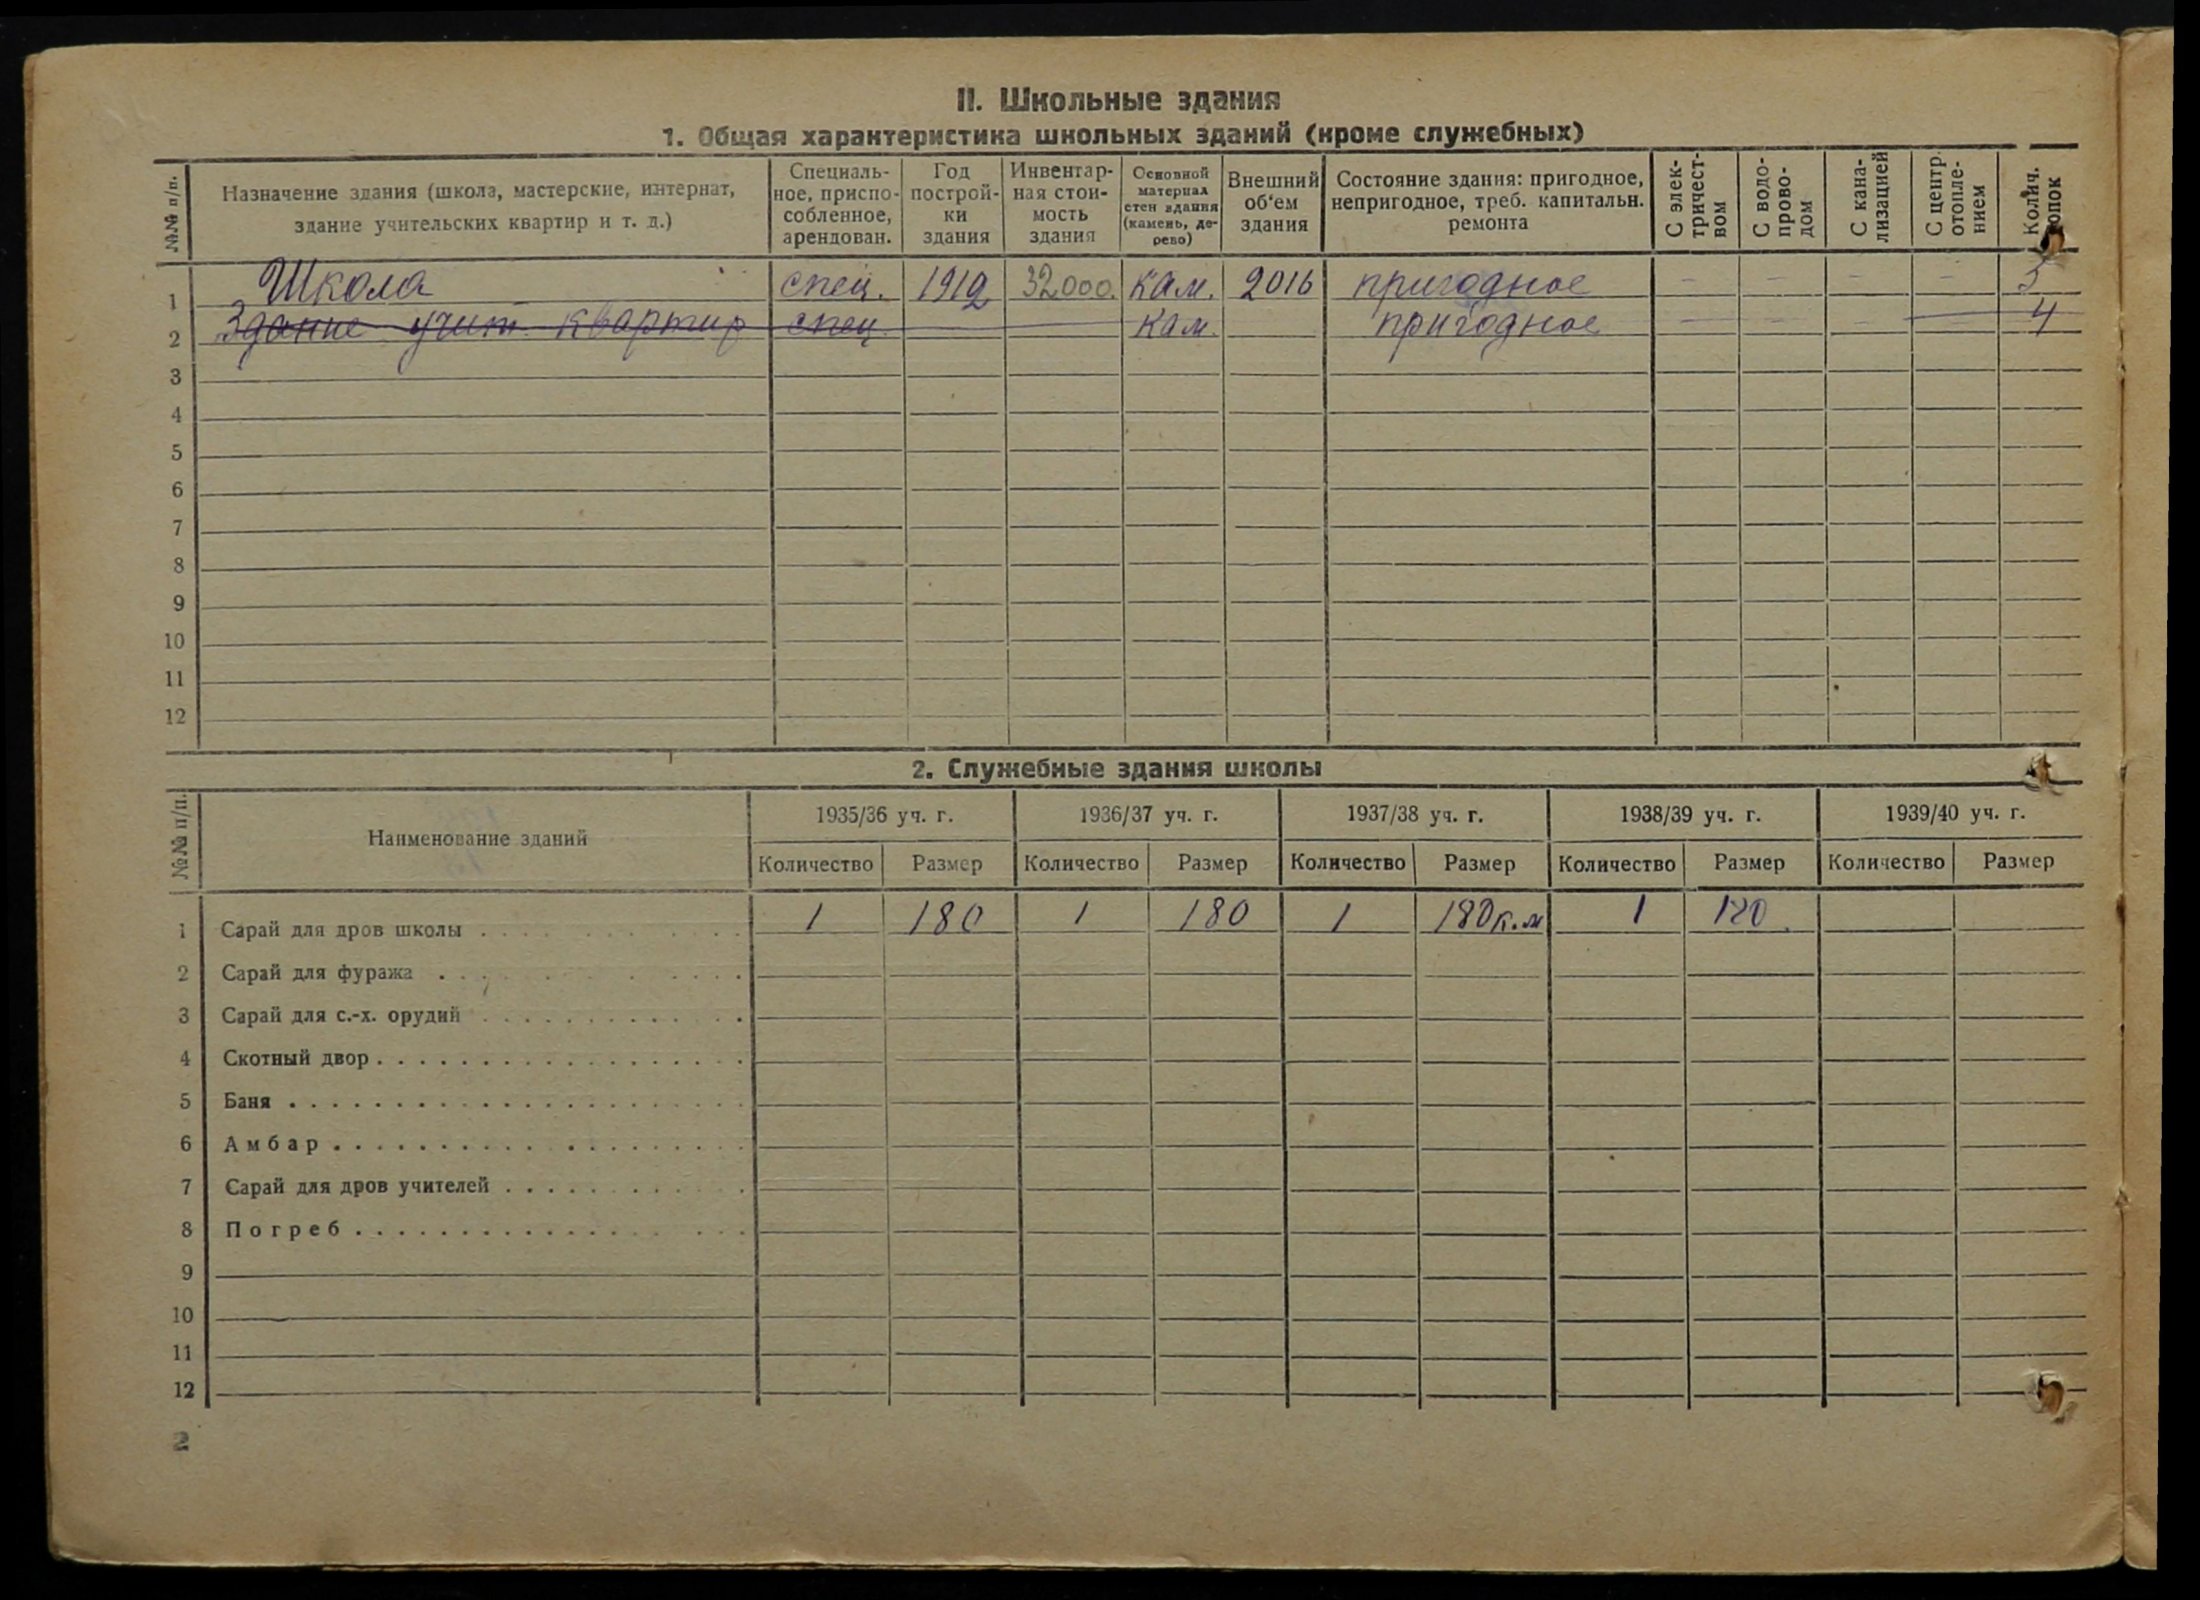 II. Школьные здания
1. Общая характеристика школьных зданий (кроме служебных)
№№ п/п.
Назначение здания (школа, мастерские, интернат,
здание учительских квартир и т. д.)
Специаль-
ное, приспо-
собленное,
арендован.
Год
построй-
ки
здания
Инвентар-
ная стои-
мость
здания
Основной
материал
стен здания
(камень, де-
рево)
Внешний
об'ем
здания
Состояние здания: пригодное,
непригодное, треб. капитальн.
ремонта
С элек-
тричест-
вом
С водо-
прово-
дом
С кана-
лизацией
С центр.
отопле-
нием
Колич.
топок
1 Школа спец. 1912 32000. кам. 2016 пригодное — — — — 5
2 Здание учит. квартир спец. кам. пригодное — — 4
3
4
5
6
7
8
9
10
11
12
2. Служебные здания школы
№№ п/п.
Наименование зданий
1935/36 уч. г. 1936/37 уч. г. 1937/38 уч. г. 1938/39 уч. г. 1939/40 уч. г.
Количество Размер Количество Размер Количество Размер Количество Размер Количество Размер
1 Сарай для дров школы 1 180 1 180 1 180 к.м 1 180
2 Сарай для фуража
3 Сарай для с.-х. орудий
4 Скотный двор
5 Баня
6 Амбар
7 Сарай для дров учителей
8 Погреб
9
10
11
12
2